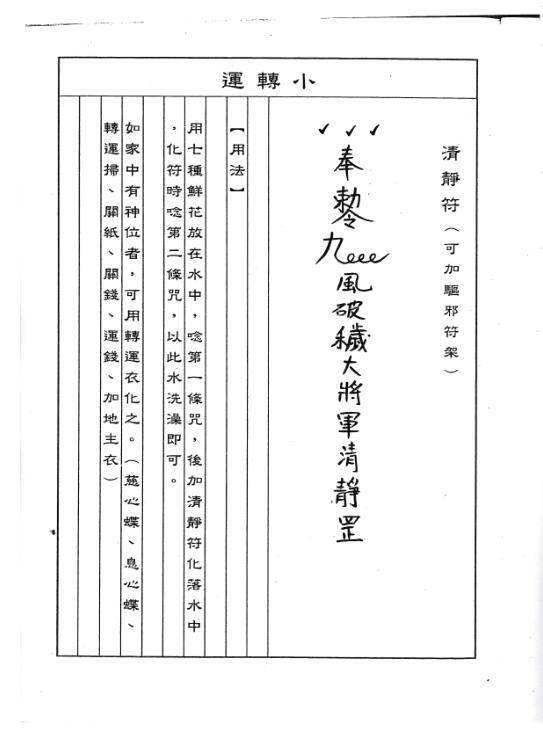 小轉運
清靜符（可加驅邪符架）
奉勅令九風破穢大將軍清靜罡
【用法】
用七種鮮花放在水中，唸第一條咒，後加清靜符化落水中
，化符時唸第二條咒，以此水洗澡即可。
如家中有神位者，可用轉運衣化之。（蔥心蝶、息心蝶、
轉運掃、關紙、關錢、運錢、加地主衣）